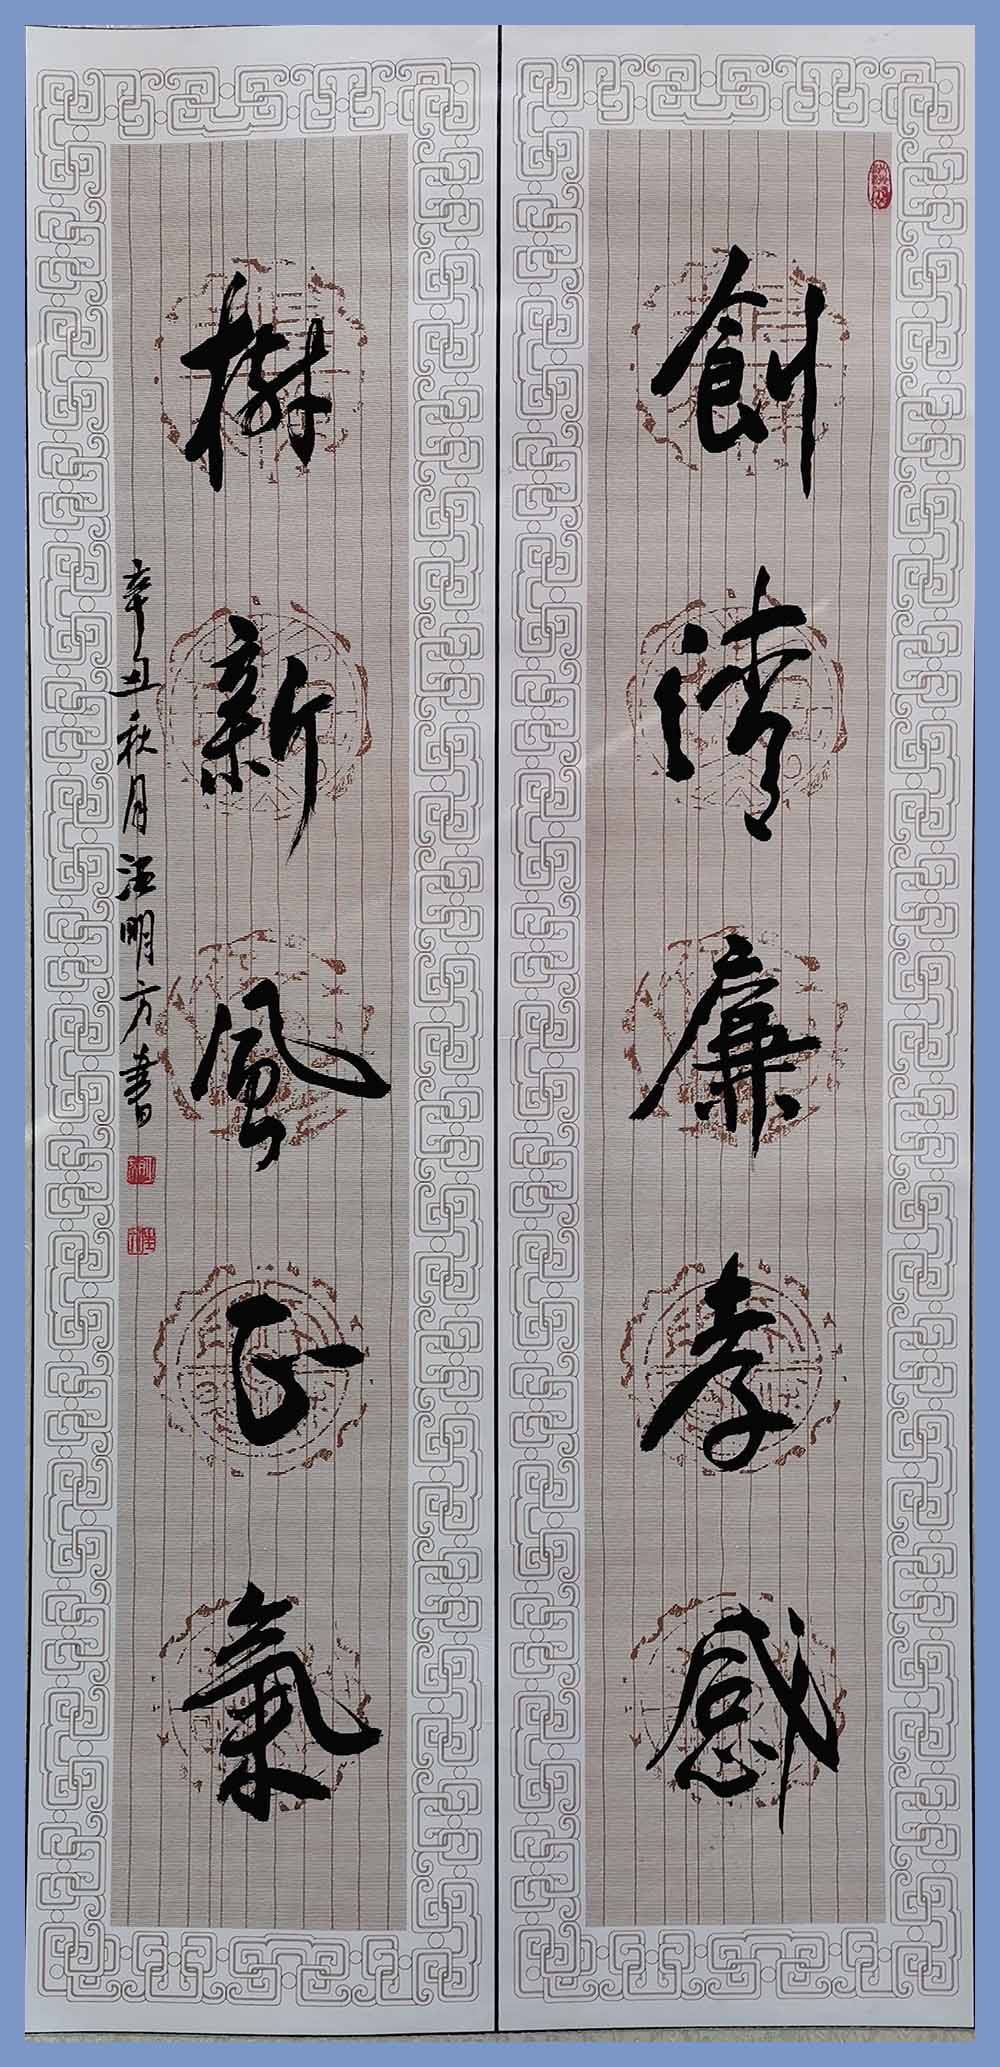 創清廉孝感
樹新風正氣
辛丑秋月汪明方書